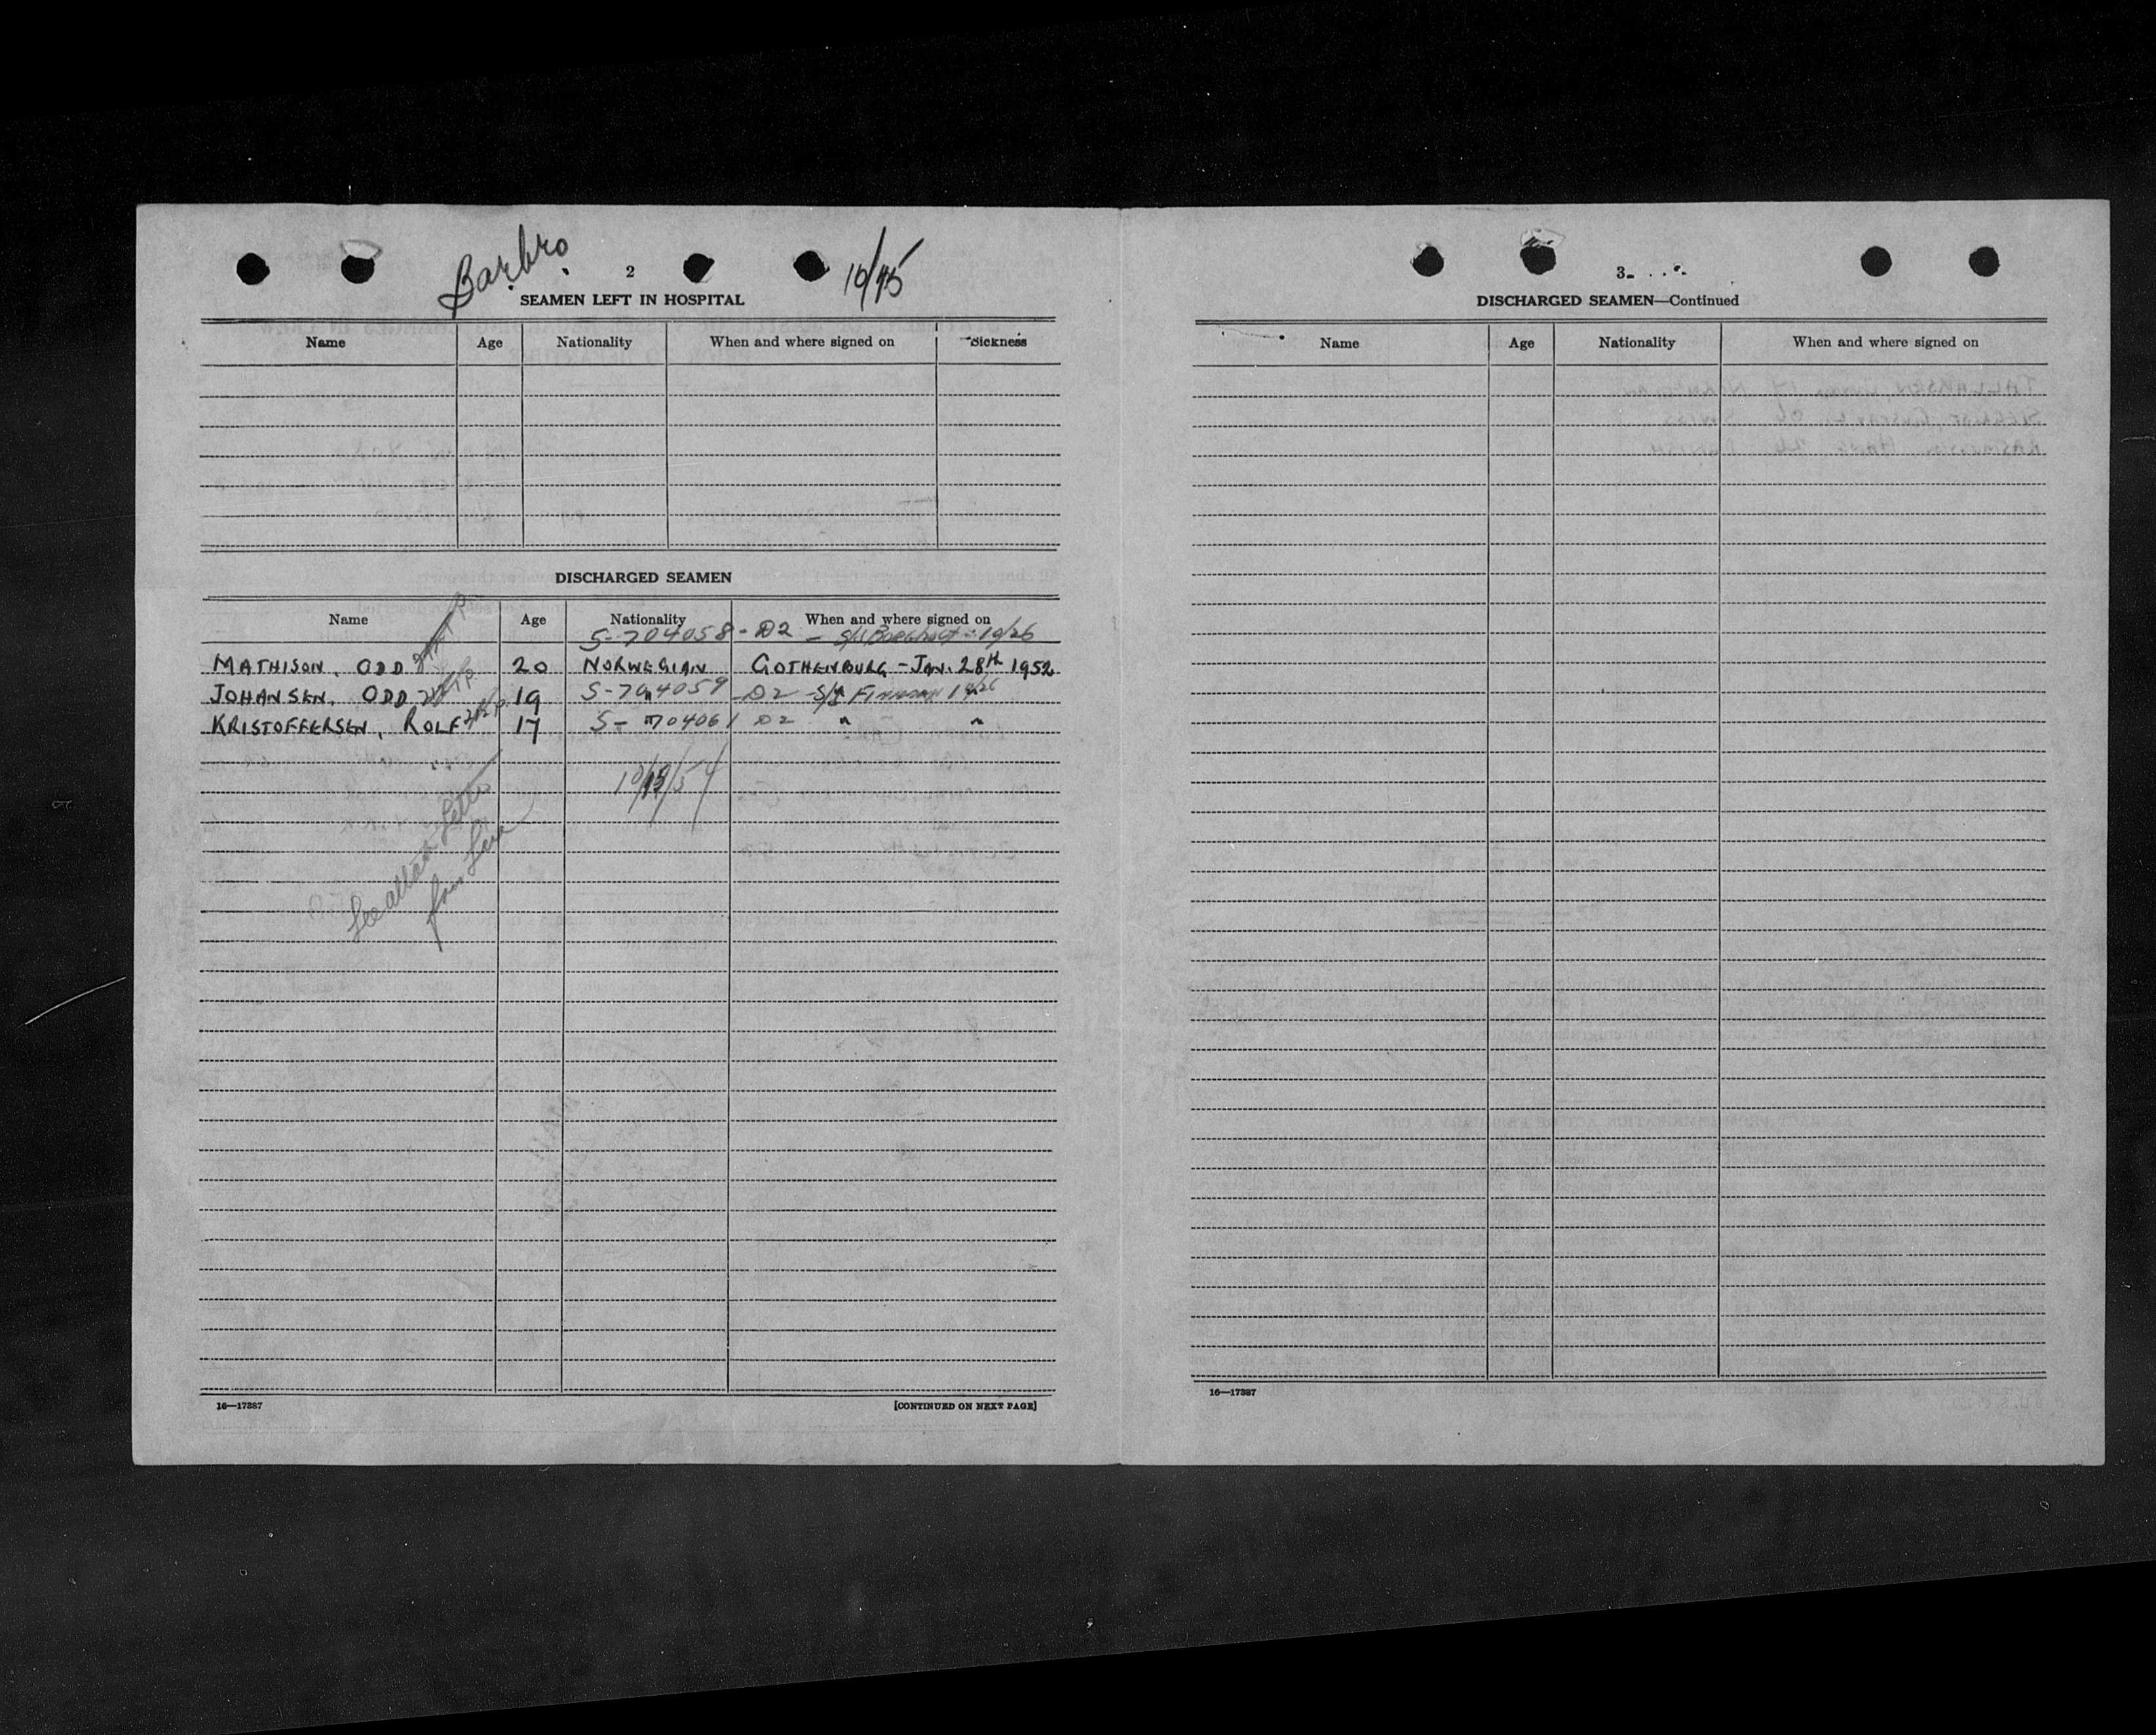 Barbro
2
10/15
SEAMEN LEFT IN HOSPITAL
Name Age Nationality When and where signed on Sickness
DISCHARGED SEAMEN
Name Age Nationality When and where signed on
S-704058 - D2 - S/S 10/26
MATHISON, ODD 20 NORWEGIAN GOTHENBURG - JAN. 28th 1952
JOHANSEN, ODD 19 S-704059 - D2 S/S
KRISTOFFERSEN, ROLF 17 S-704061 D2 " "
See attach letter
from
16—17387
[CONTINUED ON NEXT PAGE]
3
DISCHARGED SEAMEN—Continued
Name Age Nationality When and where signed on
16—17387